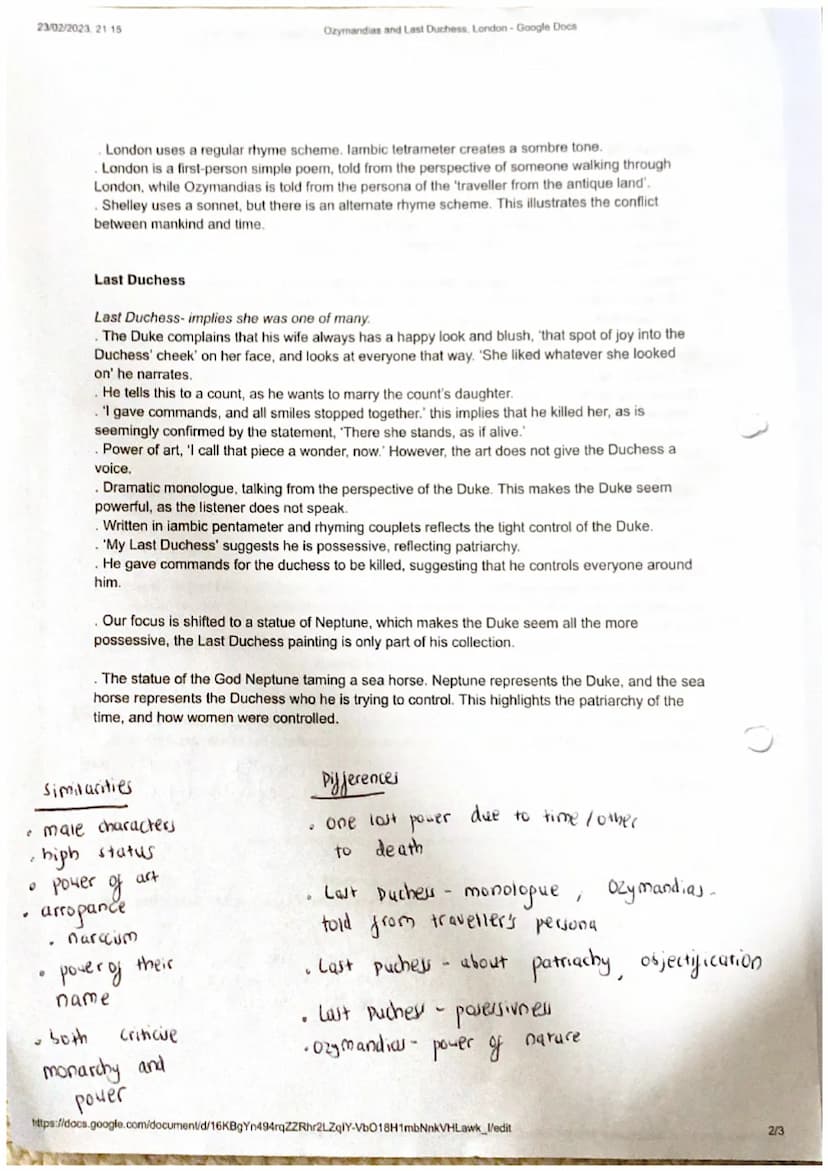 23/02/2023, 21:15
Ozymandias and Last Duchess, London - Google Docs
. London uses a regular rhyme scheme. Iambic tetrameter creates a sombre tone.
. London is a first-person simple poem, told from the perspective of someone walking through
London, while Ozymandias is told from the persona of the 'traveller from the antique land'.
. Shelley uses a sonnet, but there is an alternate rhyme scheme. This illustrates the conflict
between mankind and time.
Last Duchess
Last Duchess- implies she was one of many.
. The Duke complains that his wife always has a happy look and blush, 'that spot of joy into the
Duchess' cheek' on her face, and looks at everyone that way. 'She liked whatever she looked
on' he narrates.
. He tells this to a count, as he wants to marry the count's daughter.
. 'I gave commands, and all smiles stopped together.' this implies that he killed her, as is
seemingly confirmed by the statement, 'There she stands, as if alive.'
. Power of art, 'I call that piece a wonder, now.' However, the art does not give the Duchess a
voice.
. Dramatic monologue, talking from the perspective of the Duke. This makes the Duke seem
powerful, as the listener does not speak.
. Written in iambic pentameter and rhyming couplets reflects the tight control of the Duke.
. 'My Last Duchess' suggests he is possessive, reflecting patriarchy.
. He gave commands for the duchess to be killed, suggesting that he controls everyone around
him.
. Our focus is shifted to a statue of Neptune, which makes the Duke seem all the more
possessive, the Last Duchess painting is only part of his collection.
. The statue of the God Neptune taming a sea horse. Neptune represents the Duke, and the sea
horse represents the Duchess who he is trying to control. This highlights the patriarchy of the
time, and how women were controlled.
Similarities
. male characters
. high status
. power of art
. arrogance
. narccism
. power of their
name
. both criticise
monarchy and
power
Differences
. one lost power due to time / other
to death
. Last Duchess - monologue, Ozymandias -
told from traveller's persona
. Last Duchess - about patriachy, objectification
. Last Duchess - posessivness
. Ozymandias - power of nature
https://docs.google.com/document/d/16KBgYn494rqZZRhr2LZqIY-VbO18H1mbNnkVHLawk_I/edit
2/3